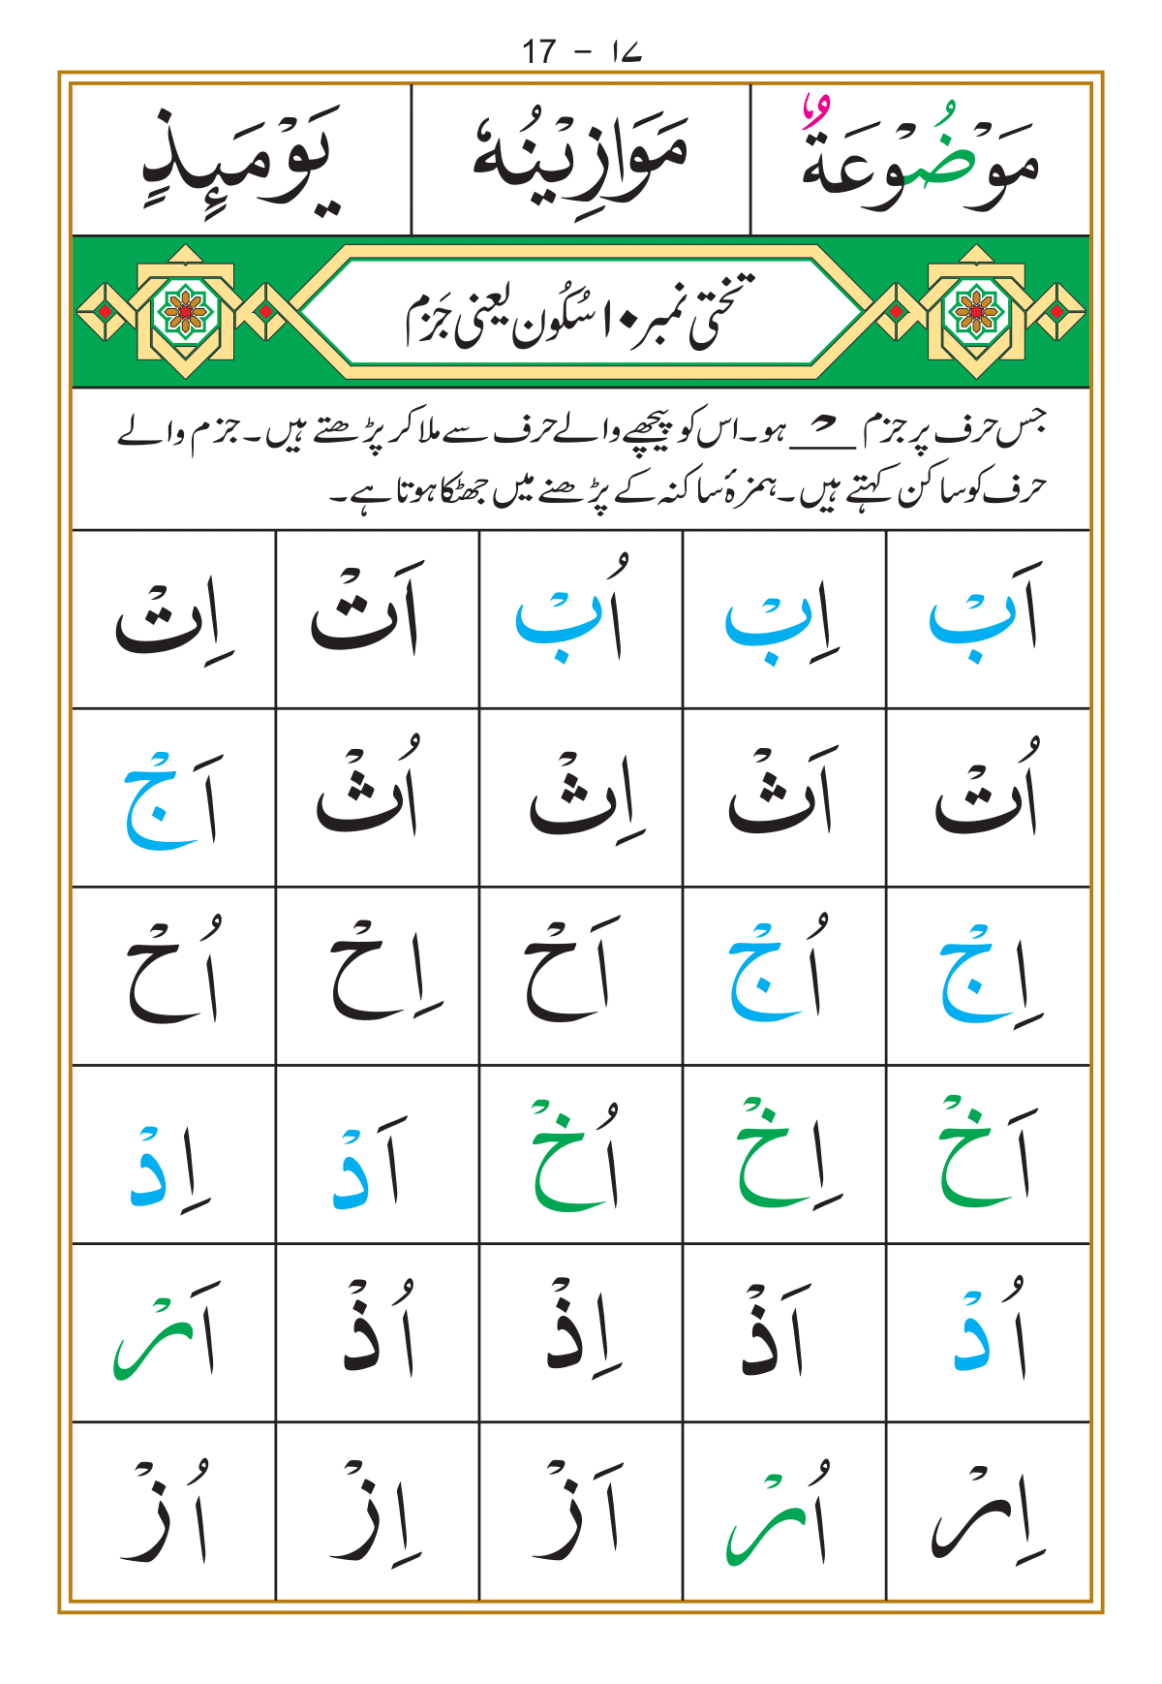 17 - ۱۷
مَوْضُوْعَةٌ مَوَازِيْنُهٗ يَوْمَىِٕذٍ
تختی نمبر ۱۰ سُکُون یعنی جَزَم
جس حرف پر جزم ـْـ ہو۔ اس کو پیچھے والے حرف سے ملا کر پڑھتے ہیں۔ جزم والے
حرف کو ساکن کہتے ہیں۔ ہمزۂ ساکنہ کے پڑھنے میں جھٹکا ہوتا ہے۔
اَبْ اِبْ اُبْ اَتْ اِتْ
اُتْ اَثْ اِثْ اُثْ اَجْ
اِجْ اُجْ اَحْ اِحْ اُحْ
اَخْ اِخْ اُخْ اَدْ اِدْ
اُدْ اَذْ اِذْ اُذْ اَرْ
اِرْ اُرْ اَزْ اِزْ اُزْ